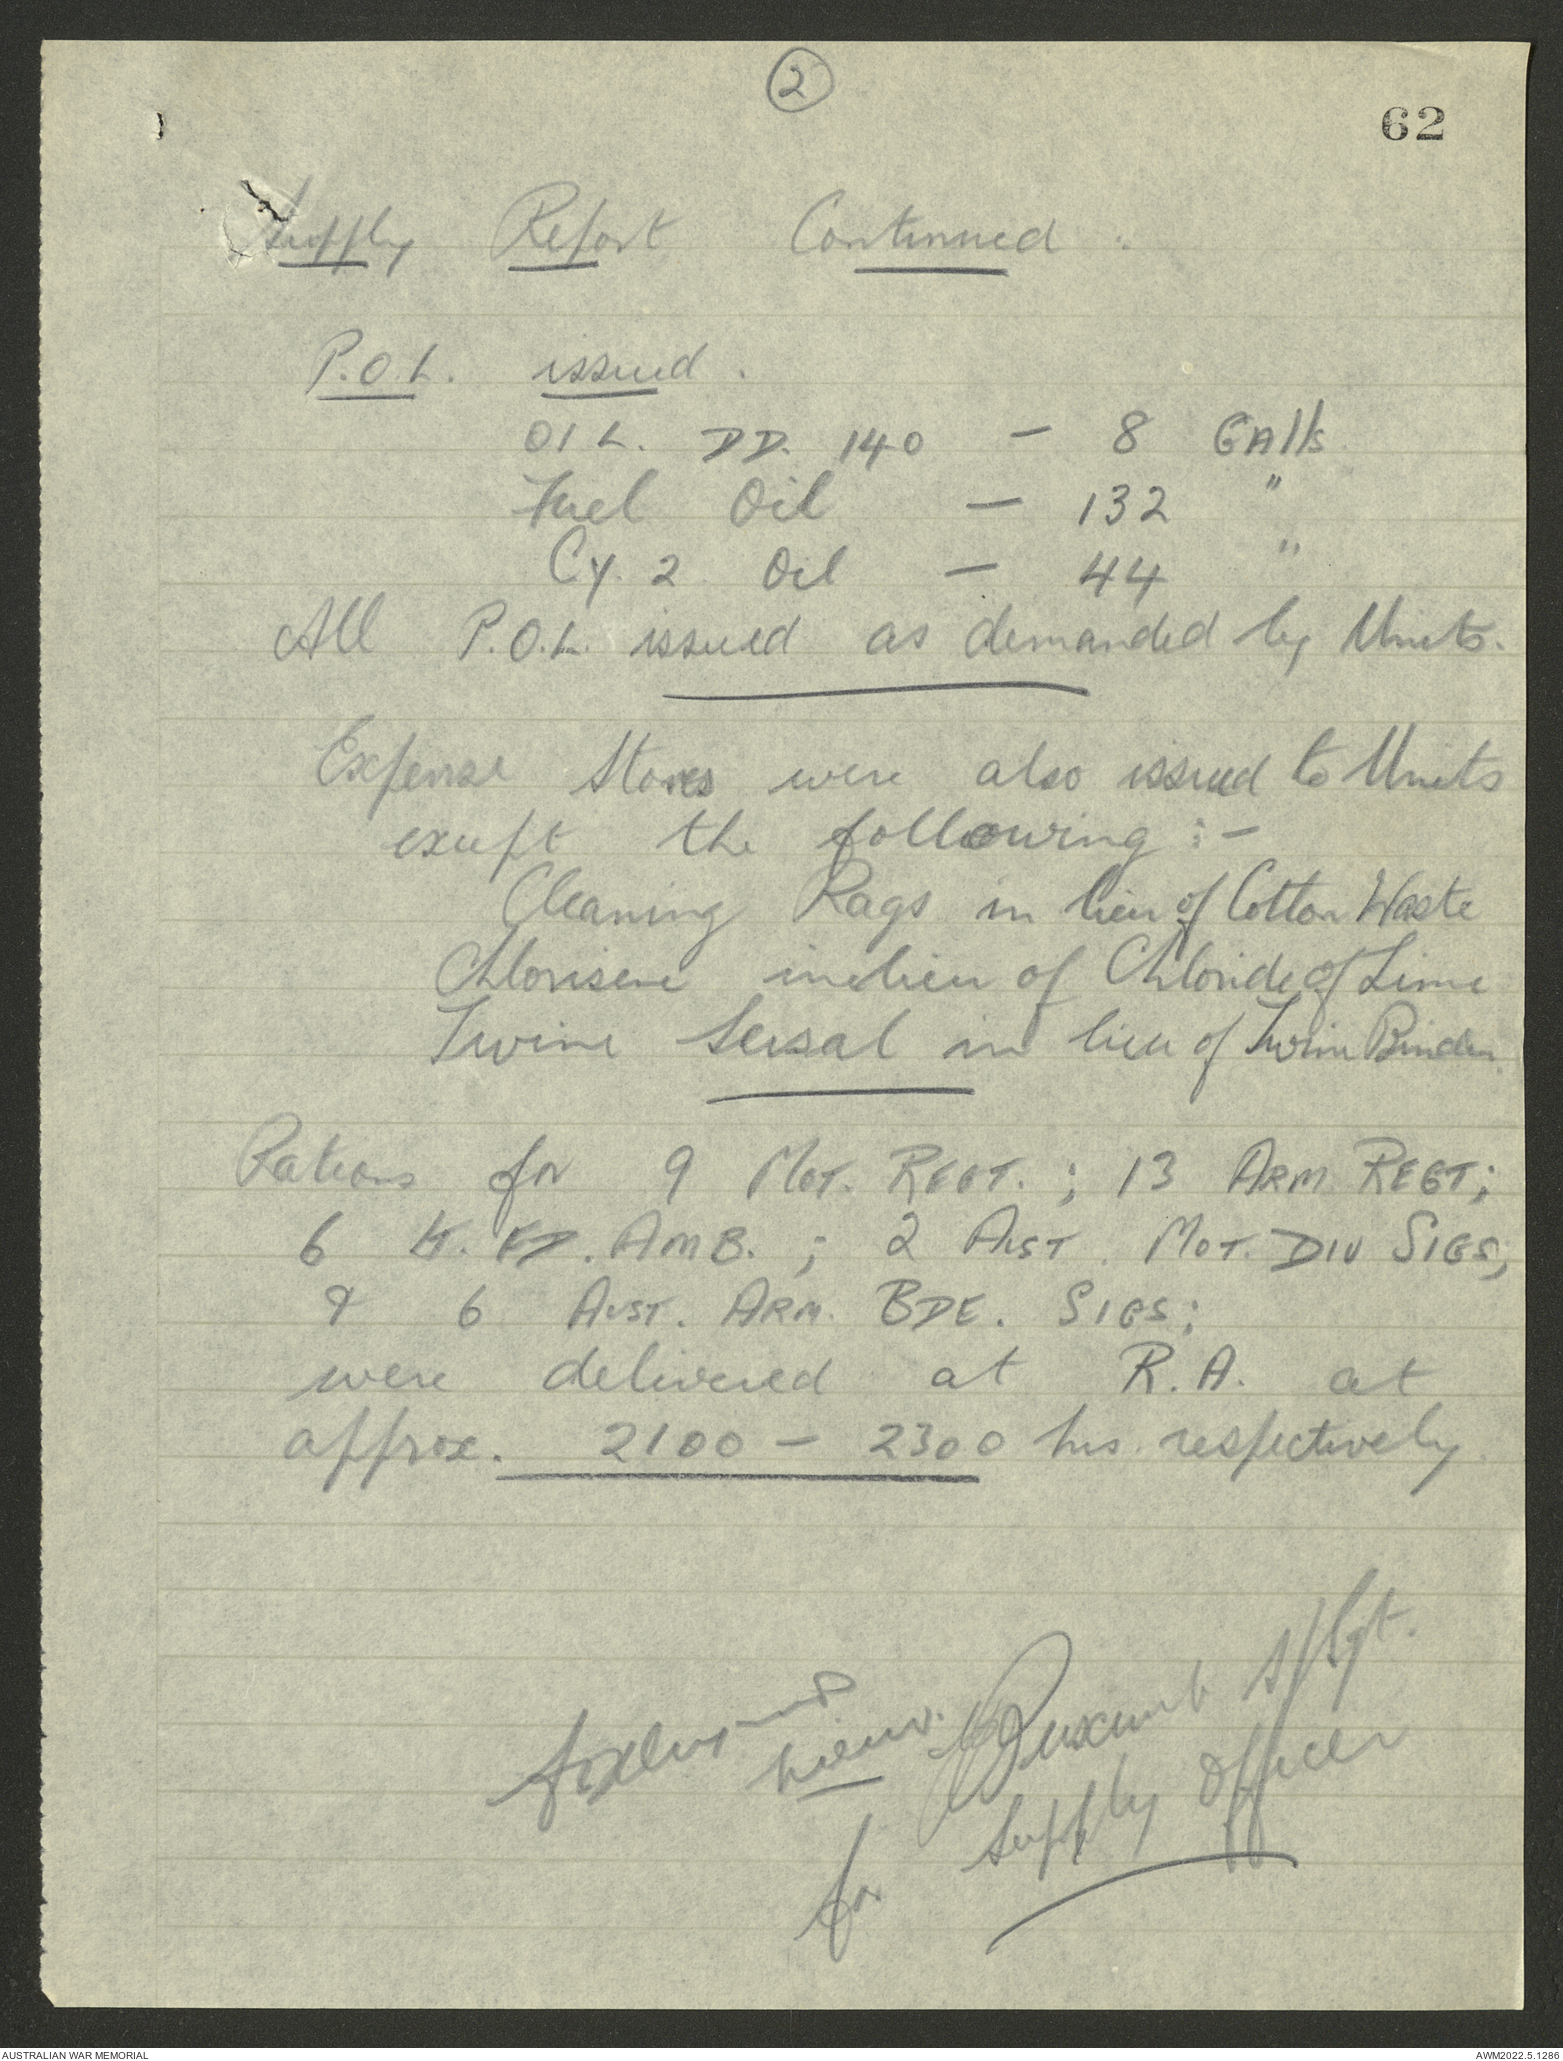 2
62
Supply Report Continued :
P.O.L. issued.
OIL. DD. 140 — 8 GAlls
Fuel Oil — 132 "
Cy. 2 Oil — 44 "
All P.O.L. issued as demanded by Units.
Expense Stores were also issued to Units
except the following :-
Cleaning Rags in lieu of Cotton Waste
Chlorisene in lieu of Chloride of Lime
Twine Seisal in lieu of Twine Binder
Rations for 9 MOT. REGT. ; 13 ARM REGT;
6 FD. AMB. ; 2 AUST. MOT. DIV SIGS;
& 6 AUST. ARM. BDE. SIGS;
were delivered at R.A. at
approx. 2100 — 2300 hrs. respectively
S/Sgt.
Lieut.
for Supply Officer
AUSTRALIAN WAR MEMORIAL
AWM2022.5.1286